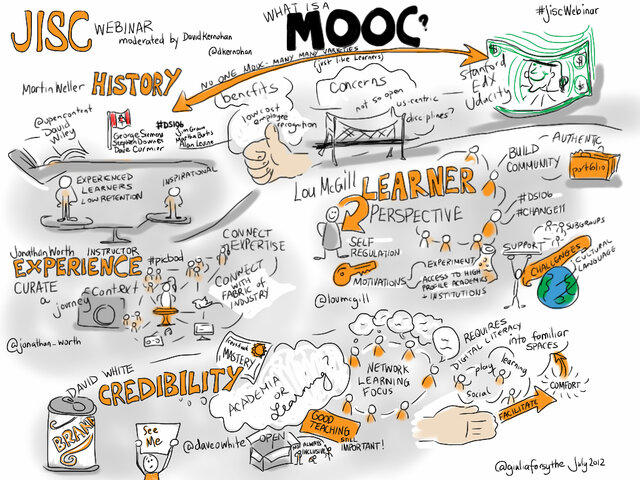 JISC WEBINAR
moderated by David Kernohan
@dkernohan
WHAT IS A
MOOC?
#jiscWebinar
NO ONE MOOC - MANY MANY VARIETIES
(just like learners)
Martin Weller HISTORY
@opencontent
David
Wiley
George Siemens
Stephen Downes
Dave Cormier
#DS106
Jim Groom
Martha Burtis
Alan Levine
benefits
low cost
employee
recognition
concerns
not so open
us-centric
disciplines?
Stanford
EdX
Udacity
EXPERIENCED
LEARNERS
LOW RETENTION
INSPIRATIONAL
Lou McGill
LEARNER
PERSPECTIVE
SELF
REGULATION
MOTIVATIONS
EXPERIMENT
ACCESS TO HIGH
PROFILE ACADEMICS
+ INSTITUTIONS
@loumcgill
BUILD
COMMUNITY
AUTHENTIC
portfolio
#DS106
#CHANGE11
SUPPORT
SUBGROUPS
CHALLENGES
CULTURAL
LANGUAGE
Jonathan Worth INSTRUCTOR
EXPERIENCE
#picbod
CURATE
a journey
Context
CONNECT
EXPERTISE
CONNECT
WITH
FABRIC OF
INDUSTRY
@jonathan_worth
DAVID WHITE
CREDIBILITY
BRAND
See
Me
MASTERY
ACADEMIA
OR
Learning?
@daveowhite
OPEN
ALWAYS
INCLUSIVE
OF
GOOD
TEACHING
STILL
IMPORTANT!
NETWORK
LEARNING
FOCUS
REQUIRES
DIGITAL LITERACY
play
learning
social
into familiar
SPACES
COMFORT
FACILITATE
@giuliaforsythe July 2012